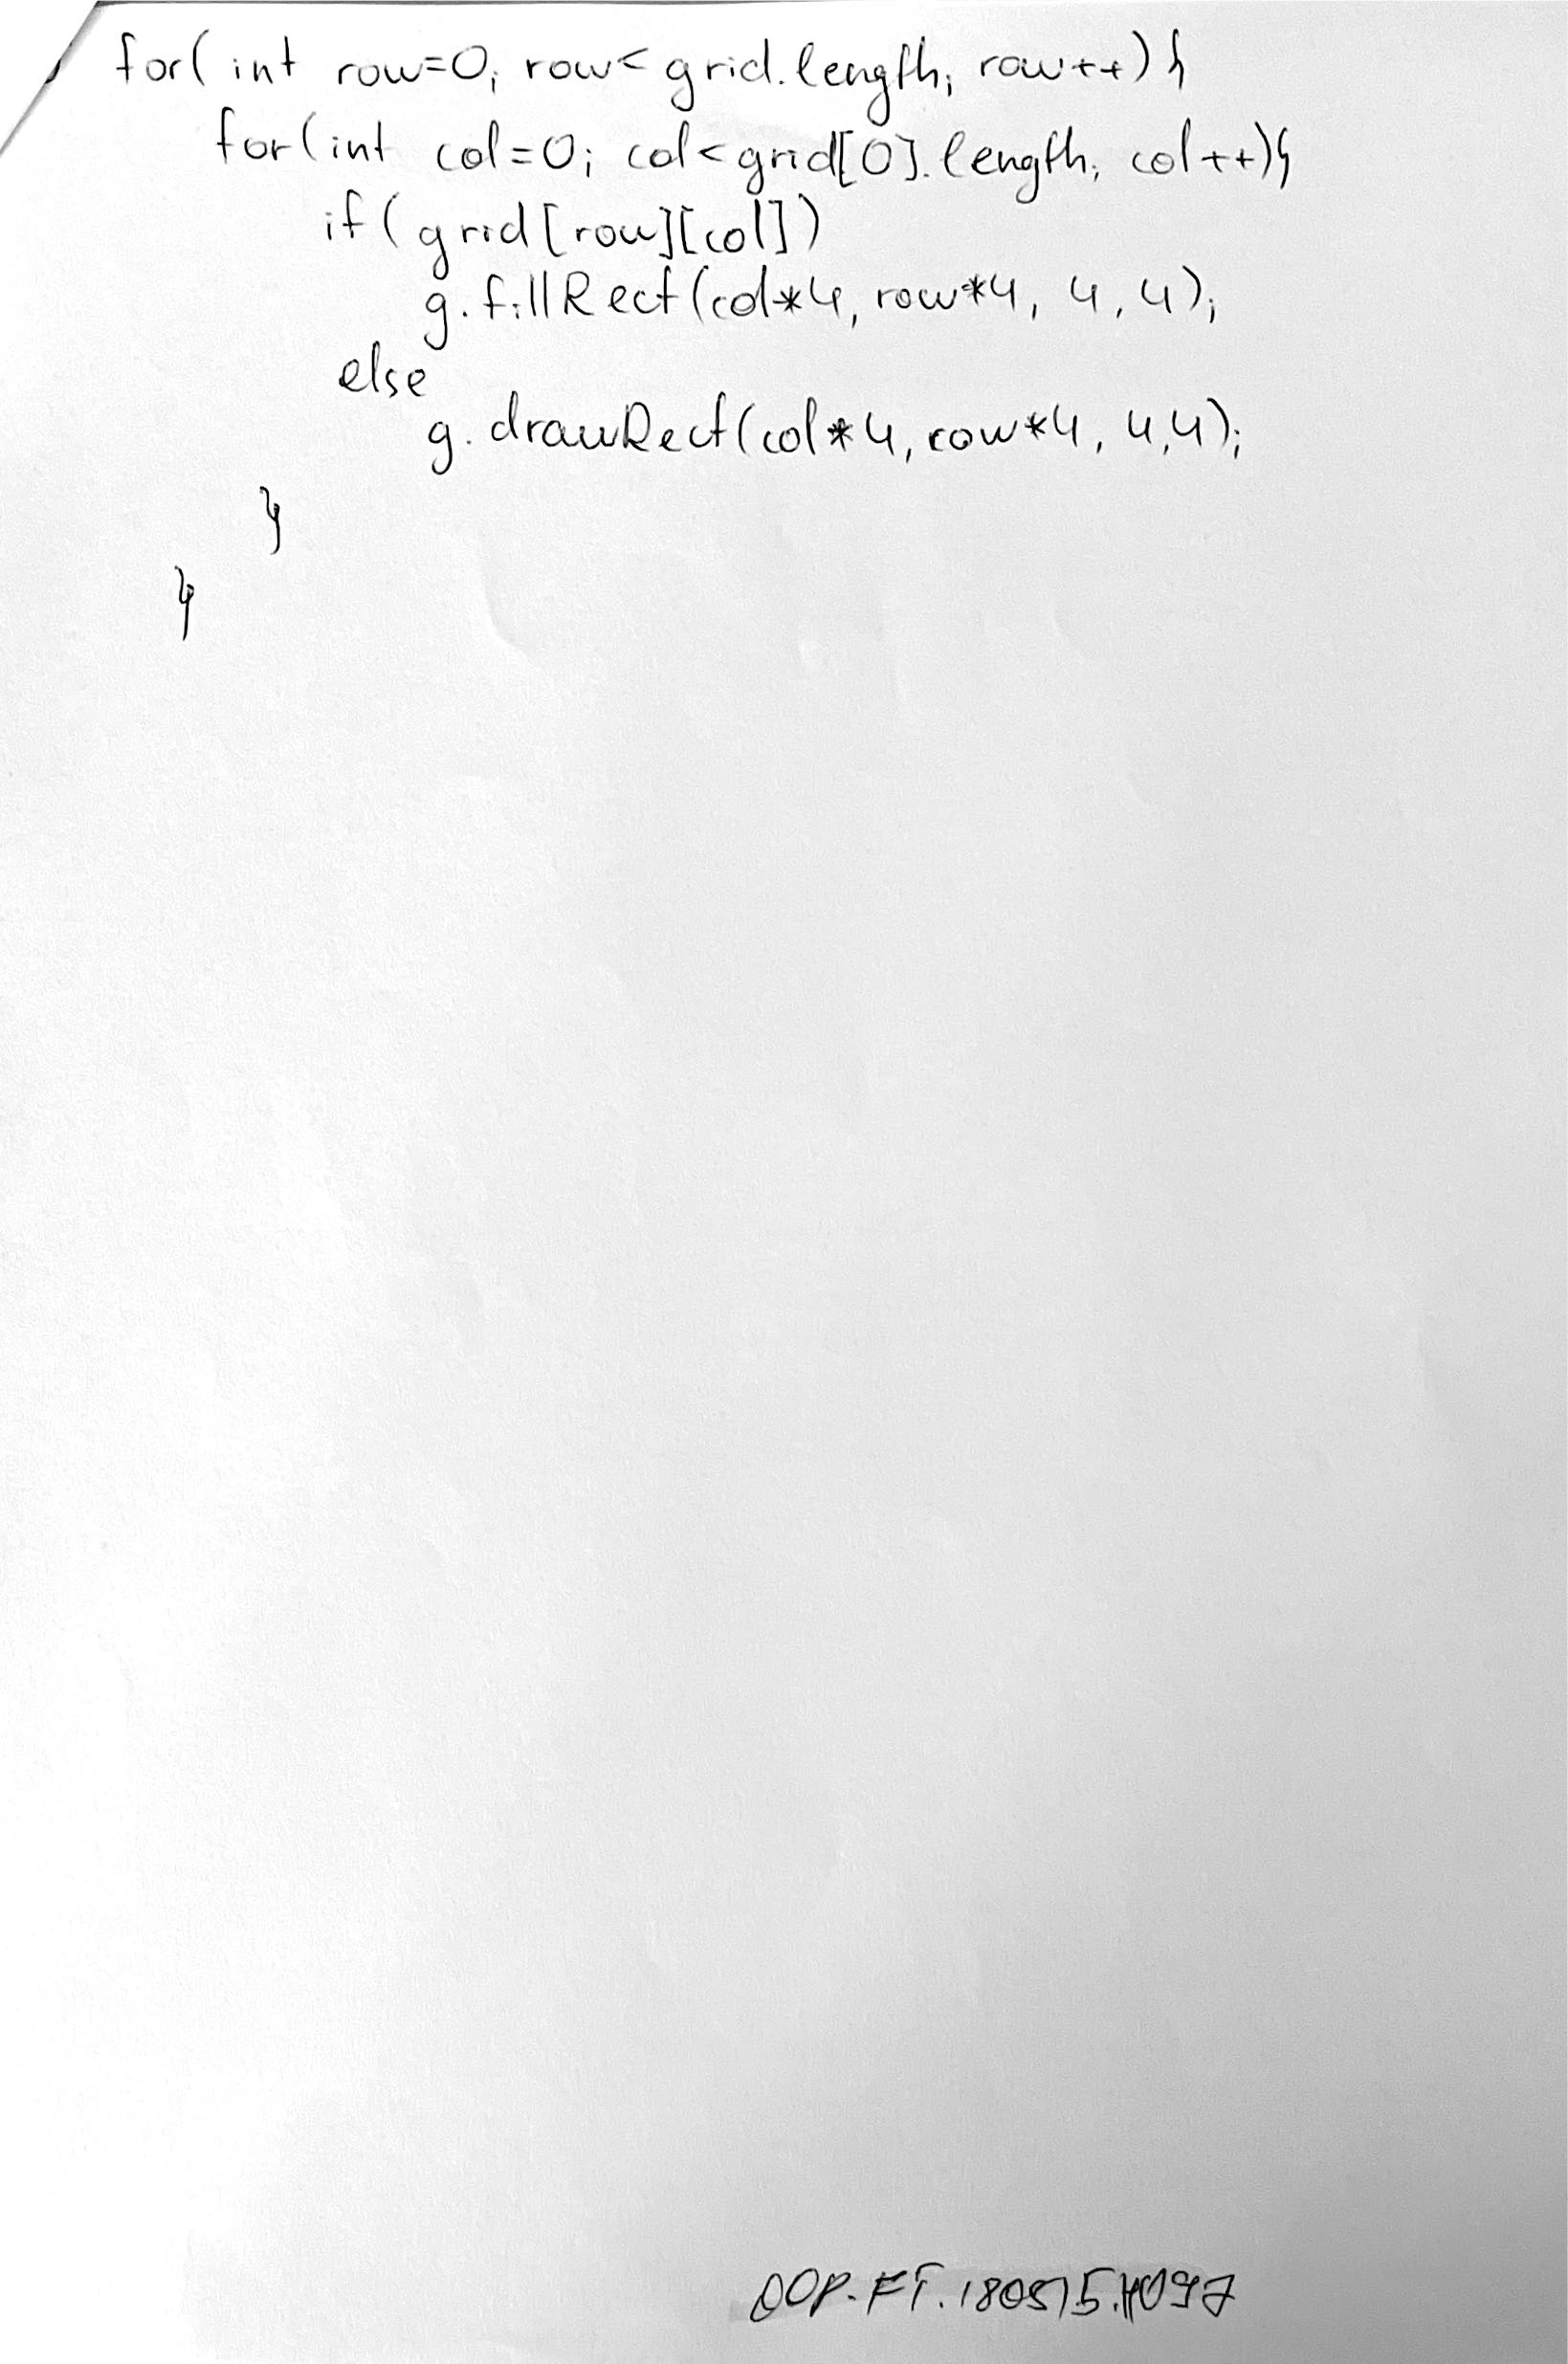 for( int row=0; row< grid.length; row++) {
for(int col=0; col<grid[0].length; col++){
if( grid[row][col])
g.fillRect(col*4, row*4, 4, 4);
else
g.drawRect(col*4, row*4, 4,4);
}
}